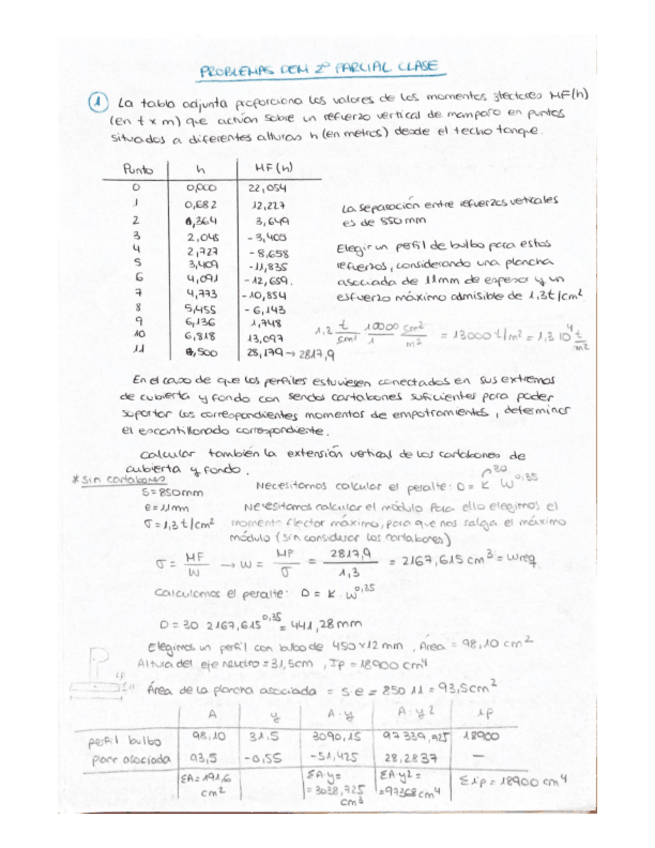 PROBLEMAS DCM 2º PARCIAL CLASE
1 La tabla adjunta proporciona los valores de los momentos flectores MF(h)
(en t x m) que actúan sobre un refuerzo vertical de mamparo en puntos
situados a diferentes alturas h (en metros) desde el techo tanque.
Punto h MF(h)
0 0,000 22,054
1 0,682 12,227
2 1,364 3,649
3 2,045 -3,405
4 2,727 -8,658
5 3,409 -11,835
6 4,091 -12,659.
7 4,773 -10,854
8 5,455 -6,143
9 6,136 1,748
10 6,818 13,097
11 8,500 28,179 → 2817,9
La separación entre refuerzos verticales
es de 850 mm
Elegir un perfil de bulbo para estos
refuerzos, considerando una plancha
asociada de 11mm de espesor y un
esfuerzo máximo admisible de 1,3t/cm²
1,3 t/cm² 10000/1 cm²/m² = 13000 t/m² = 1,3 10⁴ t/m²
En el caso de que los perfiles estuviesen conectados en sus extremos
de cubierta y fondo con sendos cartabones suficientes para poder
soportar los correspondientes momentos de empotramientos, determinar
el escantillonado correspondiente.
Calcular también la extensión vertical de los cartabones de
cubierta y fondo.
* Sin cartabones
Necesitamos calcular el peralte: D = K W^0,35
30
S = 850mm
e = 11mm
σ = 1,3 t/cm²
Necesitamos calcular el módulo. Para ello elegimos el
momento flector máximo, para que nos salga el máximo
módulo (sin considerar los cartabones)
σ = MF/W → W = MF/σ = 2817,9/1,3 = 2167,615 cm³ = Wreq
Calculemos el peralte: D = K · W^0,35
D = 30 2167,615^0,35 = 441,28 mm
Elegimos un perfil con bulbo de 450x12 mm, Área = 98,10 cm²
Altura del eje neutro = 31,5cm, Ip = 18900 cm⁴
Área de la plancha asociada = s e = 850 11 = 93,5 cm²
A y A·y A·y² ip
perfil bulbo 98,10 31.5 3090,15 97339,725 18900
panc asociada 93,5 -0,55 -51,425 28,2837 —
ΣA = 191,6 cm² ΣA·y = 3038,725 cm³ ΣA·y² = 97368 cm⁴ Σip = 18900 cm⁴